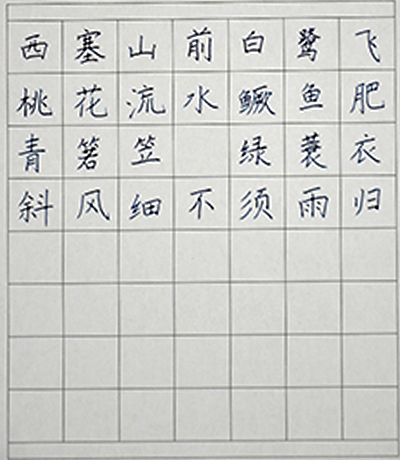 西塞山前白鹭飞
桃花流水鳜鱼肥
青箬笠 绿蓑衣
斜风细不须雨归